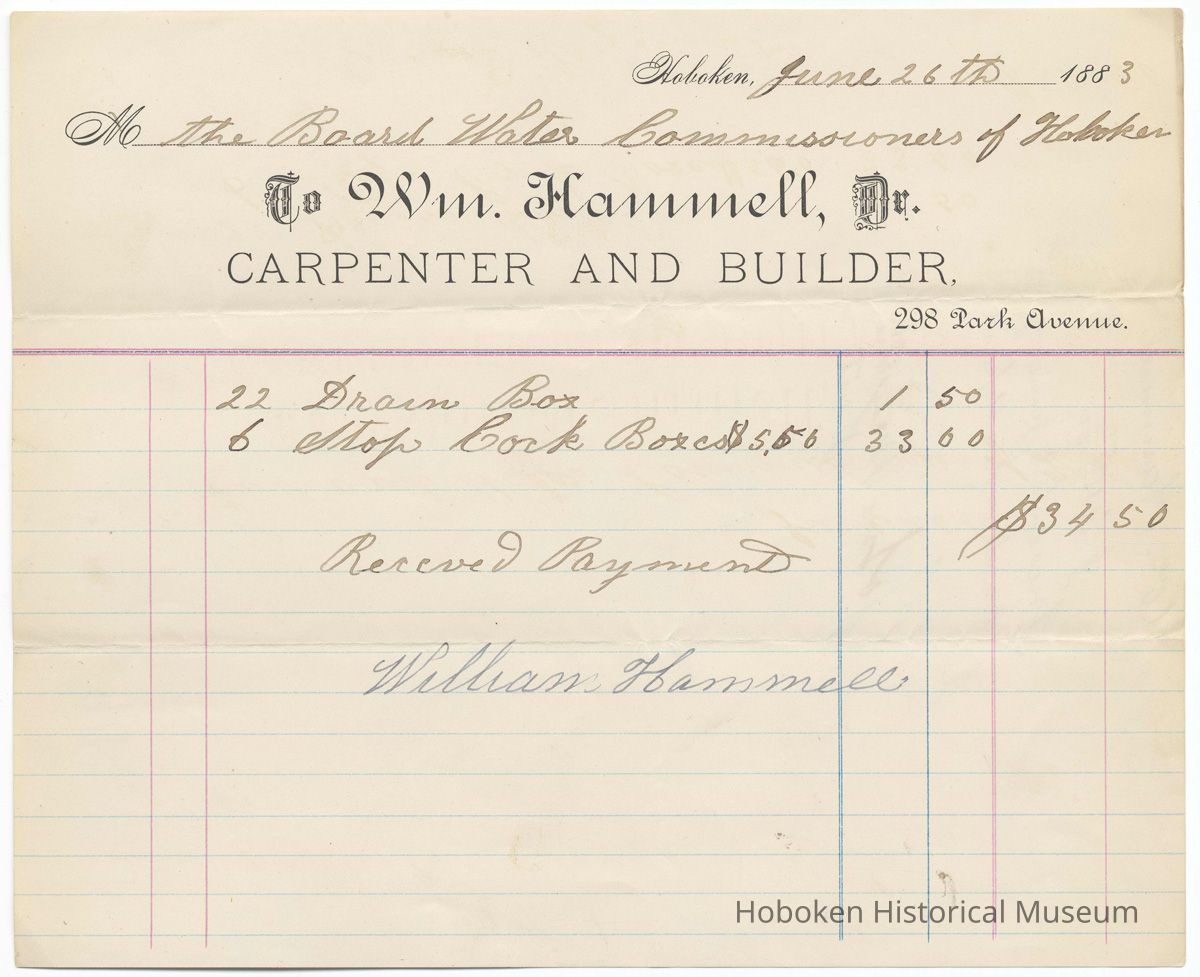 Hoboken, June 26th 1883
M the Board Water Commissioners of Hoboken
To Wm. Hammell, Dr.
CARPENTER AND BUILDER,
298 Park Avenue.
22 Drain Box 1 50
6 Stop Cock Boxes $5,50 33 00
$34 50
Receved Payment
William Hammell
Hoboken Historical Museum